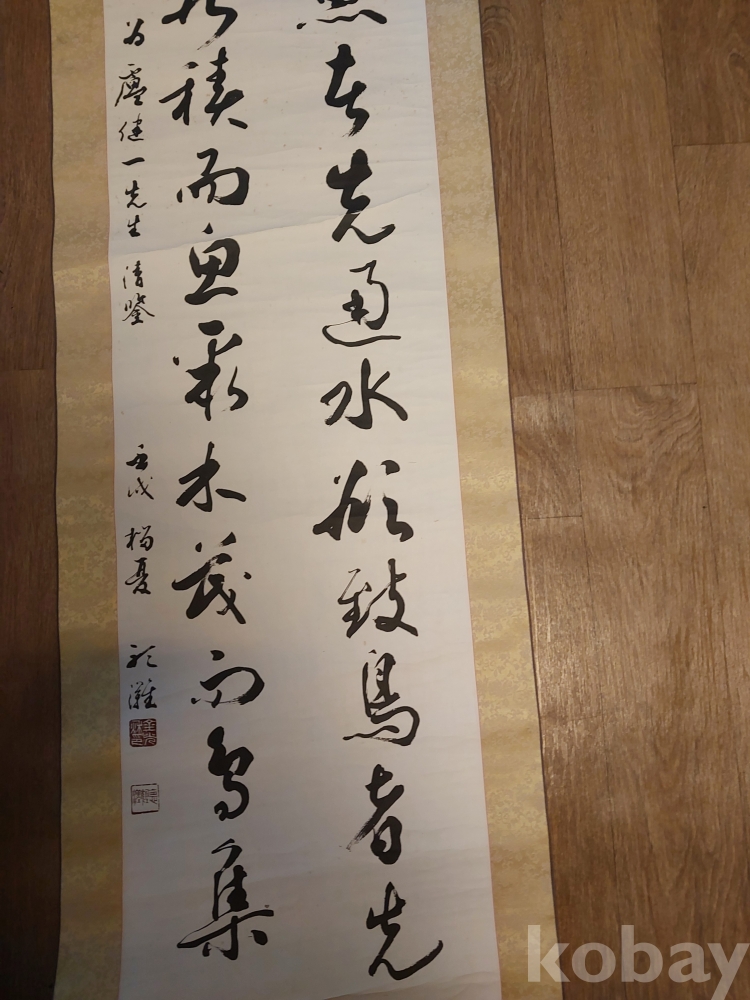 魚者先通水欲致鳥者先
積而魚聚木茂而鳥集
為盧健一先生清鑒
壬戌榴夏
kobay